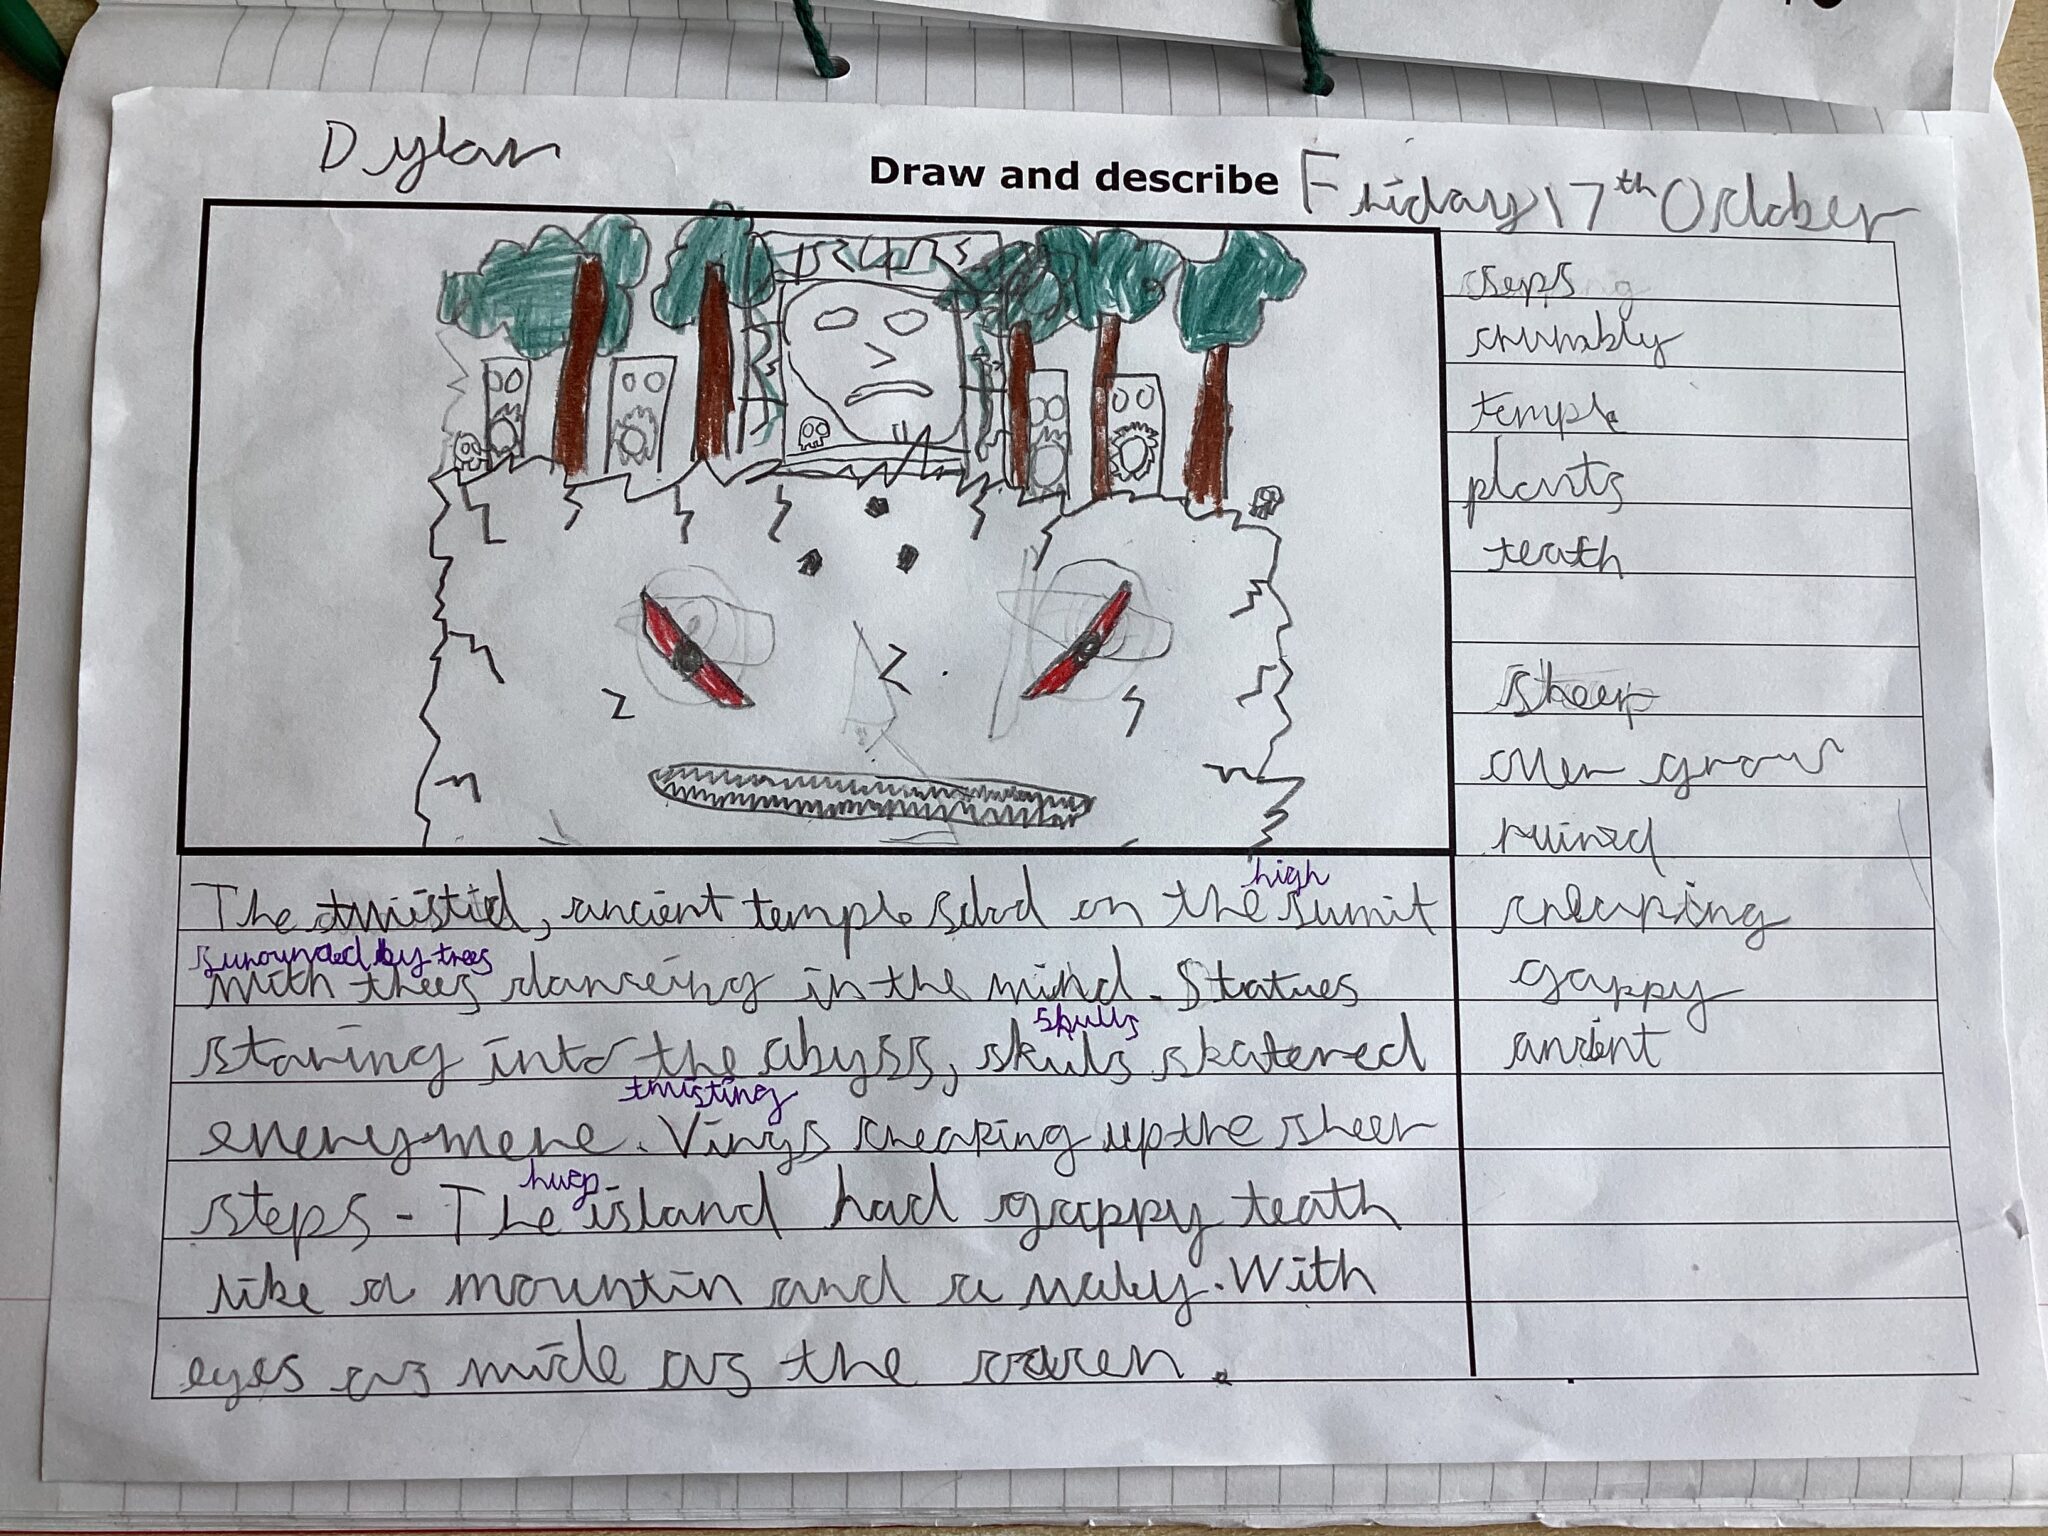 Dylan
Draw and describe
Friday 17th October
seps
crumbly
temple
plants
teath
steep
over grow
ruined
creaping
gappy
ancient
high
The twistid, ancient temple on the sumit
surounded by trees
with trees danceing in the wind. Statues
skulls
staring into the abyss, skuls skatered
twisting
everymere. Vinys creaping up the sheer
hueg
steps - The island had gappy teath
like a mountin and a valey. With
eyes as wide as the